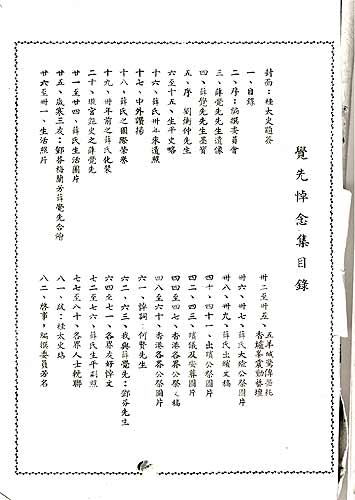 覺先悼念集目錄
封面:桂太史題簽
一、目錄
二、序:編撰委員會
三、薛覺先先生遺像
四、薛覺先先生墨寶
五、序 劉衡仲先生
六至十五、生平史略
十六、薛氏卅年來遺照
十七、中外讚揚
十八、薛氏之國際榮譽
十九、卅年前之薛氏化裝
二十、璇宮艷史之薛覺先
廿一至廿四、薛氏生活圖片
廿五、歲寒三友:鄧芬梅蘭芳薛覺先合繪
廿六至卅一、生活照片
卅二至卅五、五羊城驚傳噩耗
香爐峯震動藝壇
卅六、卅七、薛氏大殮公祭圖片
卅八、卅九、薛氏出殯文稿
四十、四十一、出殯公祭圖片
四二、四三、殯儀及安葬圖片
四四至四七、香港各界公祭文稿
四八至六十、香港各界公祭圖片
六一、悼詞:何賢先生
六二、六三、我與薛覺先:鄧芬先生
六四至七一、各界友好悼文
七二至七六、薛氏生平劇照
七七至八十、各界人士輓聯
八一、跋:桂太史坫
八二、啓事,編撰委員芳名